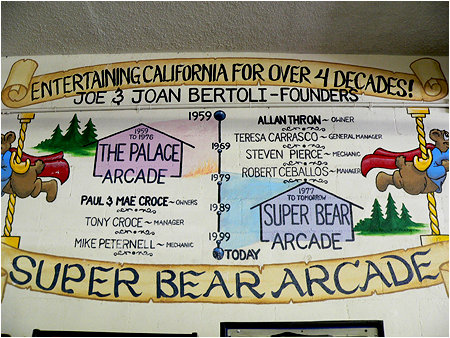 ENTERTAINING CALIFORNIA FOR OVER 4 DECADES!
JOE & JOAN BERTOLI-FOUNDERS
1959
1969
1979
1989
1999
TODAY
1959
TO 1978
THE PALACE
ARCADE
PAUL & MAE CROCE~OWNERS
TONY CROCE~MANAGER
MIKE PETERNELL~MECHANIC
ALLAN THRON~OWNER
TERESA CARRASCO~GENERAL MANAGER
STEVEN PIERCE~MECHANIC
ROBERT CEBALLOS~MANAGER
1977
TO TOMORROW
SUPER BEAR
ARCADE
SUPER BEAR ARCADE